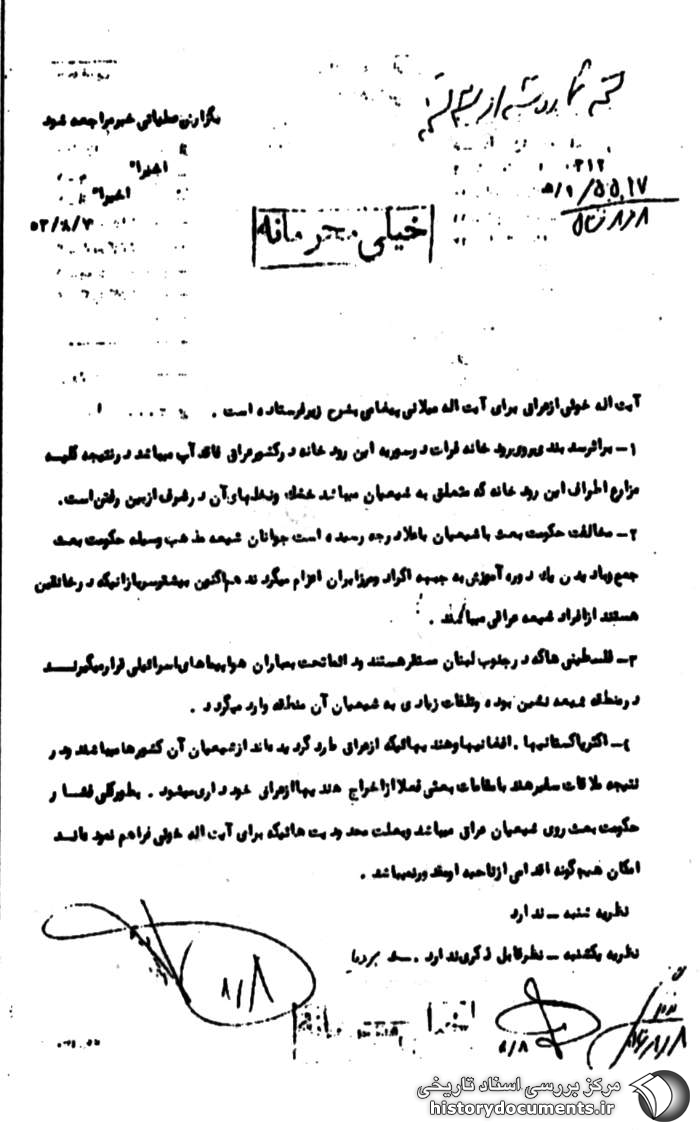 بگزارش عملیاتی خبر مراجعه شود
۳۱۲
اخیرا"
اخیرا"
۵۳/۸/۷
خیلی محرمانه
آیت اله خوئی از عراق برای آیت اله میلانی پیغامی بشرح زیر فرستاده است .
۱- براثر سد بندی بروی رود خانه فرات در سوریه این رود خانه در کشور عراق فاقد آب میباشد در نتیجه کلیه
مزارع اطراف این رود خانه که متعلق به شیعیان میباشد خشک و نخلهای آن در شرف از بین رفتن است.
۲- مخالفت حکومت بعث با شیعیان باعلا درجه رسیده است جوانان شیعه مذهب وسیله حکومت بعث
جمع و با دیدن یک دوره آموزش به جبهه اکراد و مرز ایران اعزام میگردند هم اکنون بیشتر سربازانیکه در خانقین
هستند از افراد شیعه عراقی میباشند .
۳- فلسطینی ها که در جنوب لبنان مستقر هستند و دائما تحت بمباران هواپیماهای اسرائیلی قرار میگیرند
در منطقه شیعه نشین بوده و تلفات زیادی به شیعیان آن منطقه وارد میگردد .
۴- اکثر پاکستانیها . افغانیها و هندیهائیکه از عراق طرد گردیده اند از شیعیان آن کشورها میباشند و در
نتیجه ملاقات سفیر هند با مقامات بعثی فعلا از اخراج هندیها از عراق خود داری میشود . بطور کلی فشار
حکومت بعث روی شیعیان عراق میباشد و بعلت محدودیت هائیکه برای آیت اله خوئی فراهم نموده اند
امکان هیچگونه اقدامی از ناحیه او مقدور نمیباشد .
نظریه شنبه - ندارد
نظریه یکشنبه - نظر قابل ذکری ندارد .
۸/۸
۸/۸
مرکز بررسی اسناد تاریخی
historydocuments.ir